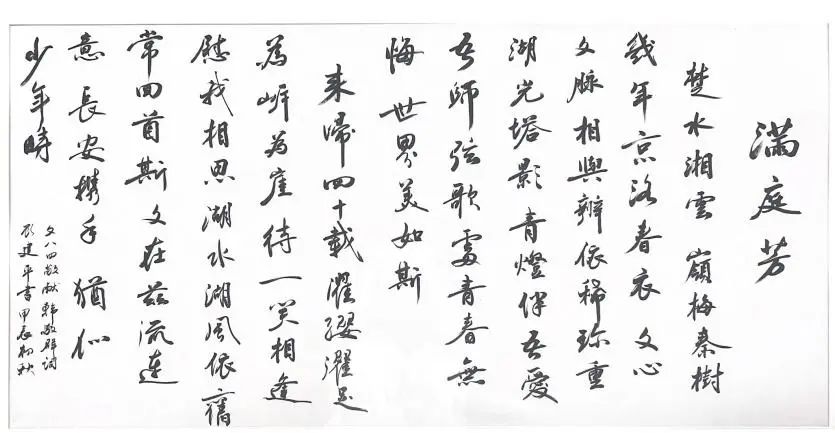 滿庭芳
楚水湘雲 嶺梅秦樹
幾年京洛春衣 文心
文脈相與辨依稀珍重
湖光塔影青燈伴吾愛
吾師弦歌處青春無
悔世界美如斯
来歸四十載濯纓濯足
為岸為崖待一笑相逢
慰我相思湖水湖風依舊
常回首斯文在兹流連
意長安攜手猶似
少年時
文八四敬献 韓敬群词
建平書甲辰初秋